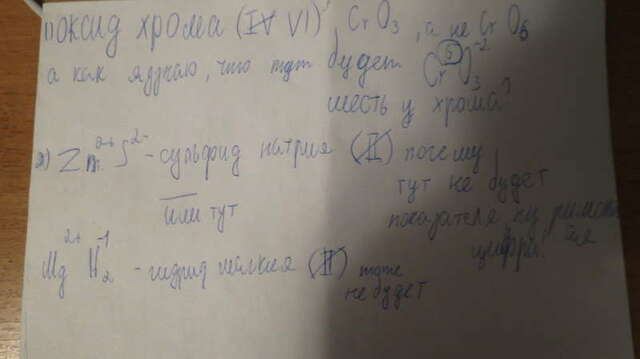 оксид хрома (IV VI), CrO3, а не CrO6
а как я думаю, что тут будет Cr⁵O3⁻²
шесть у хрома?
Zn²⁺S²⁻ - сульфид натрия (II) почему
тут не будет
или тут
показателя ну римской
цифры
Mg²⁺H2⁻¹ - гидрид (II) тоже
не будет